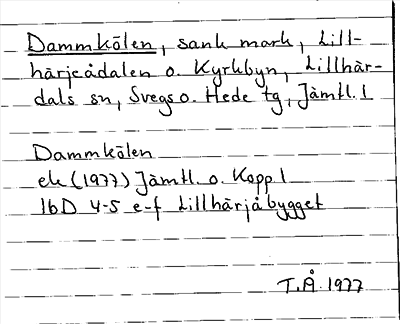 Dammkölen, sank mark, Lill-
härjeådalen o. Kyrkbyn, Lillhär-
dals sn, Svegs o. Hede tg, Jämtl. l
Dammkölen
ek (1977) Jämtl. o. Kopp l
16D 4-5 e-f Lillhärjåbygget
T.Å. 1977